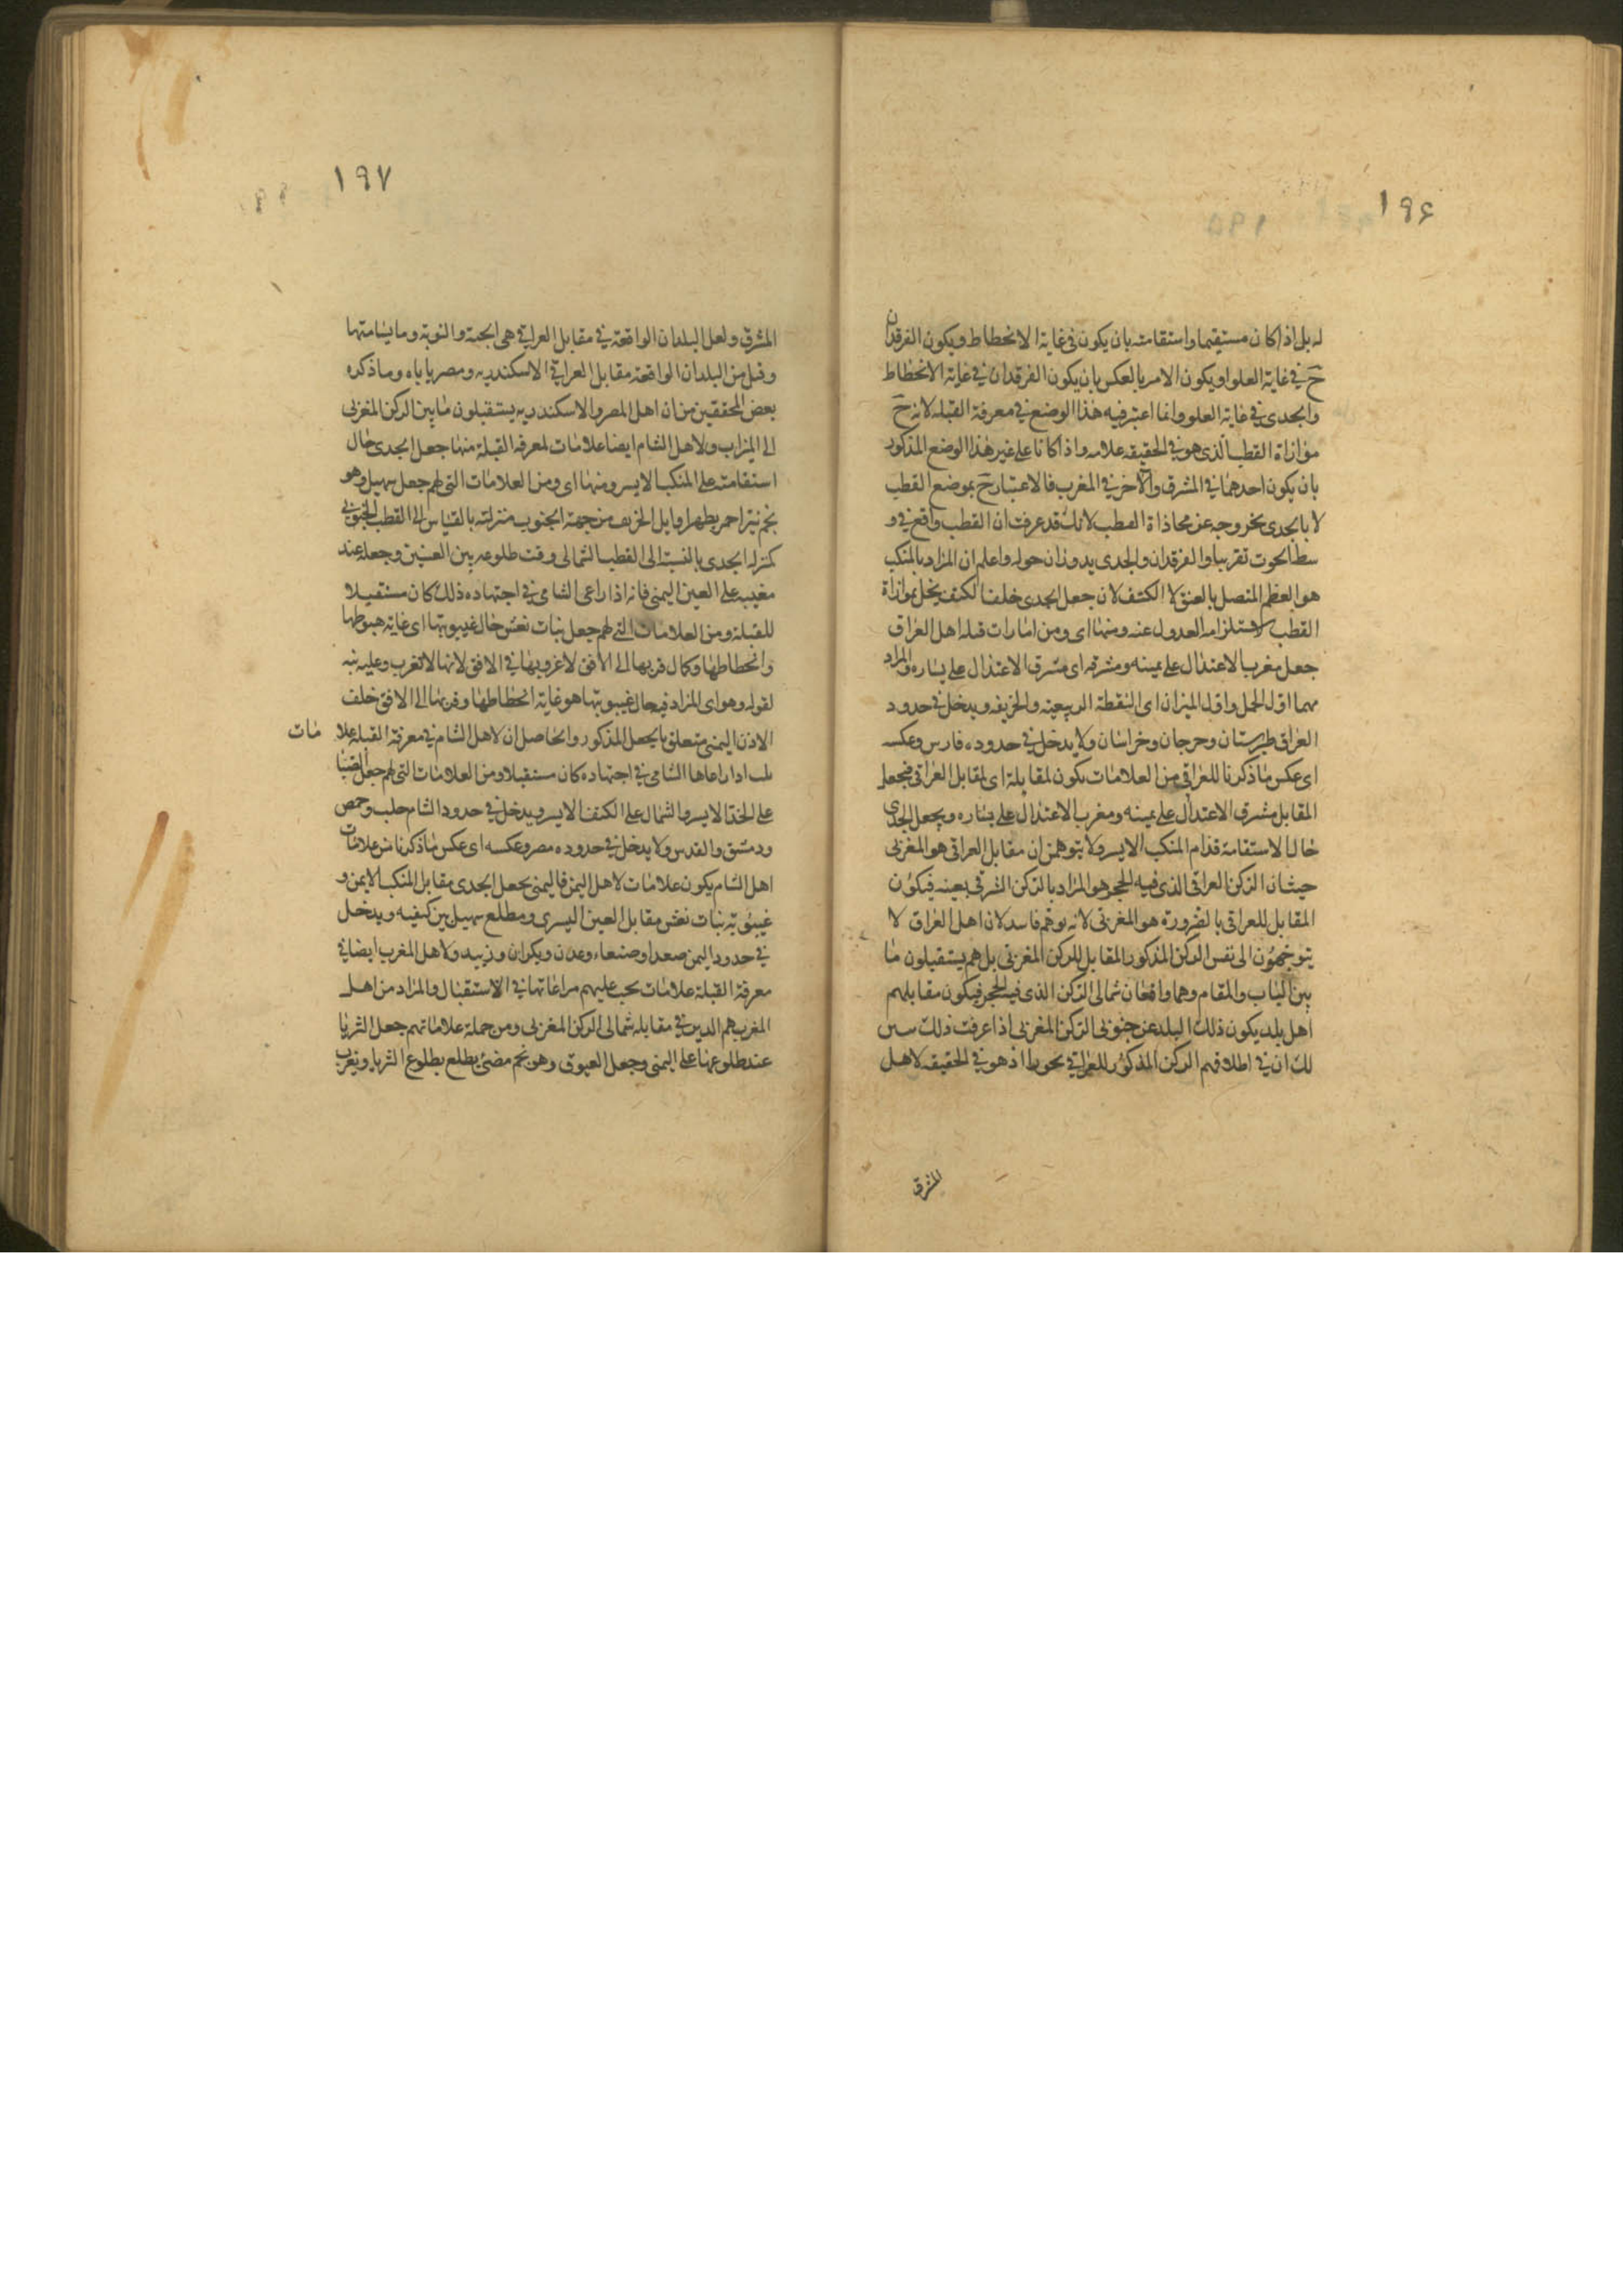 ١٩۶
له بل اذا كان مستقيما واستقامته بان يكون فى غاية الانحطاط ويكون الفرقدان
ح فى غاية العلو او يكون الامر بالعكس بان يكون الفرقدان فى غاية الانحطاط
والجدى فى غاية العلو وانما اعتبر فيه هذا الوضع فى معرفة القبله لانه ح
موازاة القطب الذى هو فى الحقيقه علامه واذا كانا على غير هذا الوضع المذكور
بان يكون احدهما فى المشرق والآخر فى المغرب فالاعتبار ح بموضع القطب
لا بالجدى بخروجه عن محاذاة القطب لانك قد عرفت ان القطب واقع فى و
سط الحوت تقريبا والفرقدان والجدى يدوران حوله واعلم ان المراد بالمنكب
هو العظم المتصل بالعنق لا الكتف لان جعل الجدى خلف الكتف يخل بموازاة
القطب لاستلزامه العدول عنه ومنها اى ومن امارات قبله اهل العراق
جعل مغرب الاعتدال على يمينه ومشرقه اى مشرق الاعتدال على يساره والمراد
بهما اول الحمل واول الميزان اى النقطة الربيعيه والخريفه ويدخل فى حدود
العراق طبرستان وجرجان وخراسان ولا يدخل فى حدوده فارس وعكسه
اى عكس ما ذكرنا للعراقى من العلامات يكون لمقابلة اى لمقابل العراقى فيجعل
المقابل مشرق الاعتدال على يمينه ومغرب الاعتدال على يساره ويجعل الجدى
حال الاستقامة قدام المنكب الايسر ولا يتوهمن ان مقابل العراقى هو المغربى
حيث ان الركن العراقى الذى فيه الحجر هو المراد بالركن الشرقى بعينه فيكون
المقابل للعراقى بالضرورة هو المغربى لانه توهم فاسد لان اهل العراق لا
يتوجهون الى نفس الركن المذكور المقابل للركن المغربى بل هم يستقبلون ما
بين الباب والمقام وهما واقعان شمالى الركن الذى فيه الحجر فيكون مقابلهم
اهل بلد يكون ذلك البلد عن جنوبى الركن المغربى اذا عرفت ذلك تبين
لك ان فى اطلاقهم الركن المذكور للعراقى تجوزا اذ هو فى الحقيقه لاهل
المشرق
١٩٧
المشرق ولعل البلدان الواقعة فى مقابل العراقى هى الحبشة والنوبة وما يسامتها
وقيل من البلدان الواقعة مقابل العراقى الاسكندريه ومصر ياباه وما ذكره
بعض المحققين من ان اهل المصر والاسكندريه يستقبلون ما بين الركن المغربى
الى الميزاب ولاهل الشام ايضا علامات لمعرفه القبلة منها جعل الجدى حال
استقامته على المنكب الايسر ومنها اى ومن العلامات التى لهم جعل سهيل وهو
نجم نير احمر يظهر اوايل الخريف من جهة الجنوب منزلته بالقياس الى القطب الجنوبى
كمنزله الجدى بالنسبة الى القطب الشمالى وقت طلوعه بين العينين وجعله عند
مغيبه على العين اليمنى فانه اذا راعى الشامى فى اجتهاده ذلك كان مستقبلا
للقبلة ومن العلامات التى لهم جعل بنات نعش حال غيبوبتها اى غاية هبوطها
وانحطاطها وكمال قربها الى الأفق لا غروبها فى الافق لانها لا تغرب وعليه نبه
لقوله وهو اى المراد فى حال غيبوبتها هو غاية انحطاطها وقربها الى الافق خلف
الاذن اليمنى متعلق بالجعل المذكور والحاصل ان لاهل الشام فى معرفة القبله علا مات
ثلث اذا راعاها الشامى فى اجتهاده كان مستقبلا ومن العلامات التى لهم جعل الصبا
على الخد الايسر والشمال على الكتف الايسر ويدخل فى حدود الشام حلب وحمص
ودمشق والقدس ولا يدخل فى حدوده مصر وعكسه اى عكس ما ذكرنا من علامات
اهل الشام يكون علامات لاهل اليمن فاليمنى يجعل الجدى مقابل المنكب الايمن و
غيبوبة بنات نعش مقابل العين اليسرى ومطلع سهيل بين كتفيه ويدخل
فى حدود اليمن صعدا وصنعاء وعدن وزبيد ولاهل المغرب ايضا فى
معرفة القبلة علامات يجب عليهم مراعاتها فى الاستقبال والمراد من اهل
المغرب هم الذين فى مقابله شمالى الركن المغربى ومن جملة علاماتهم جعل الثريا
عند طلوعها على اليمنى وجعل العيوق وهو نجم مضئ يطلع بطلوع الثريا ويغرب